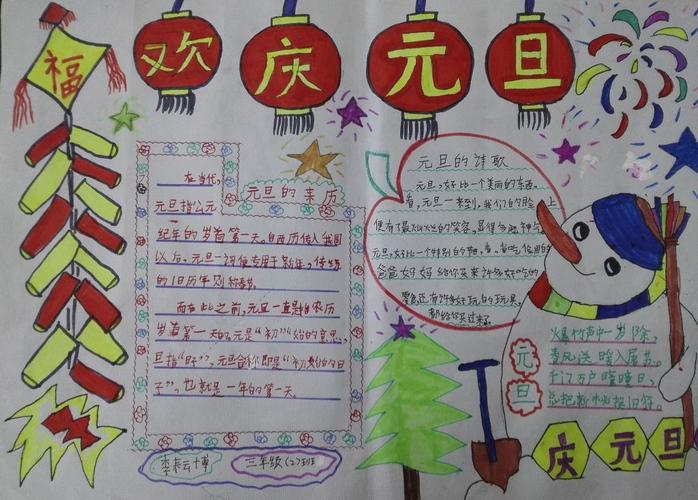 福
欢庆元旦
元旦的来历
在当代,
元旦指公元
纪年的岁首第一天。自西历传入我国
以后,元旦一词便专用于新年,传统
的旧历年则称春节。
而在此之前,元旦一直指的农历
岁首第一天的。元是“初”“始的意思,
旦指“日子”,元旦合称即是“初始的日
子”,也就是一年的第一天。
三年级(2)班
元旦的诗歌
元旦,好比一个美丽的东西。
看,元旦一来到,我们的脸上
便有了最灿烂的笑容,显得
元旦,好比一个特别的节日,看,
爸爸好好给你买来许多好吃的
零食还有许多好玩的玩具,
都给你买过来了。
元旦
爆竹声中一岁除,
春风送暖入屠苏。
千门万户曈曈日,
总把新桃换旧符。
庆元旦